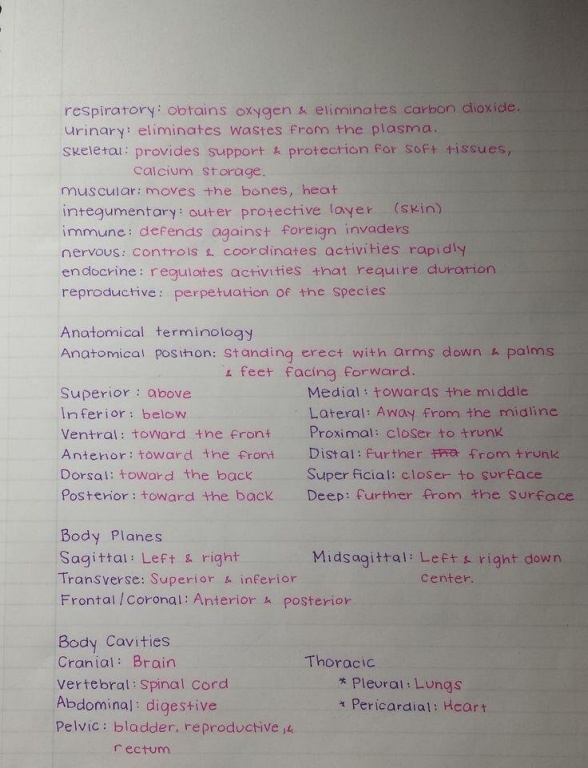 respiratory: obtains oxygen & eliminates carbon dioxide.
urinary: eliminates wastes from the plasma.
skeletal: provides support & protection for soft tissues,
calcium storage.
muscular: moves the bones, heat
integumentary: outer protective layer (skin)
immune: defends against foreign invaders
nervous: controls & coordinates activities rapidly
endocrine: regulates activities that require duration
reproductive: perpetuation of the species
Anatomical terminology
Anatomical position: standing erect with arms down & palms
& feet facing forward.
Superior: above
Inferior: below
Ventral: toward the front
Anterior: toward the front
Dorsal: toward the back
Posterior: toward the back
Medial: towards the middle
Lateral: Away from the midline
Proximal: closer to trunk
Distal: further from trunk
Superficial: closer to surface
Deep: further from the surface
Body Planes
Sagittal: Left & right
Transverse: Superior & inferior
Frontal/Coronal: Anterior & posterior
Midsagittal: Left & right down
center.
Body Cavities
Cranial: Brain
Vertebral: Spinal Cord
Abdominal: digestive
Pelvic: bladder, reproductive, &
rectum
Thoracic
* Pleural: Lungs
* Pericardial: Heart